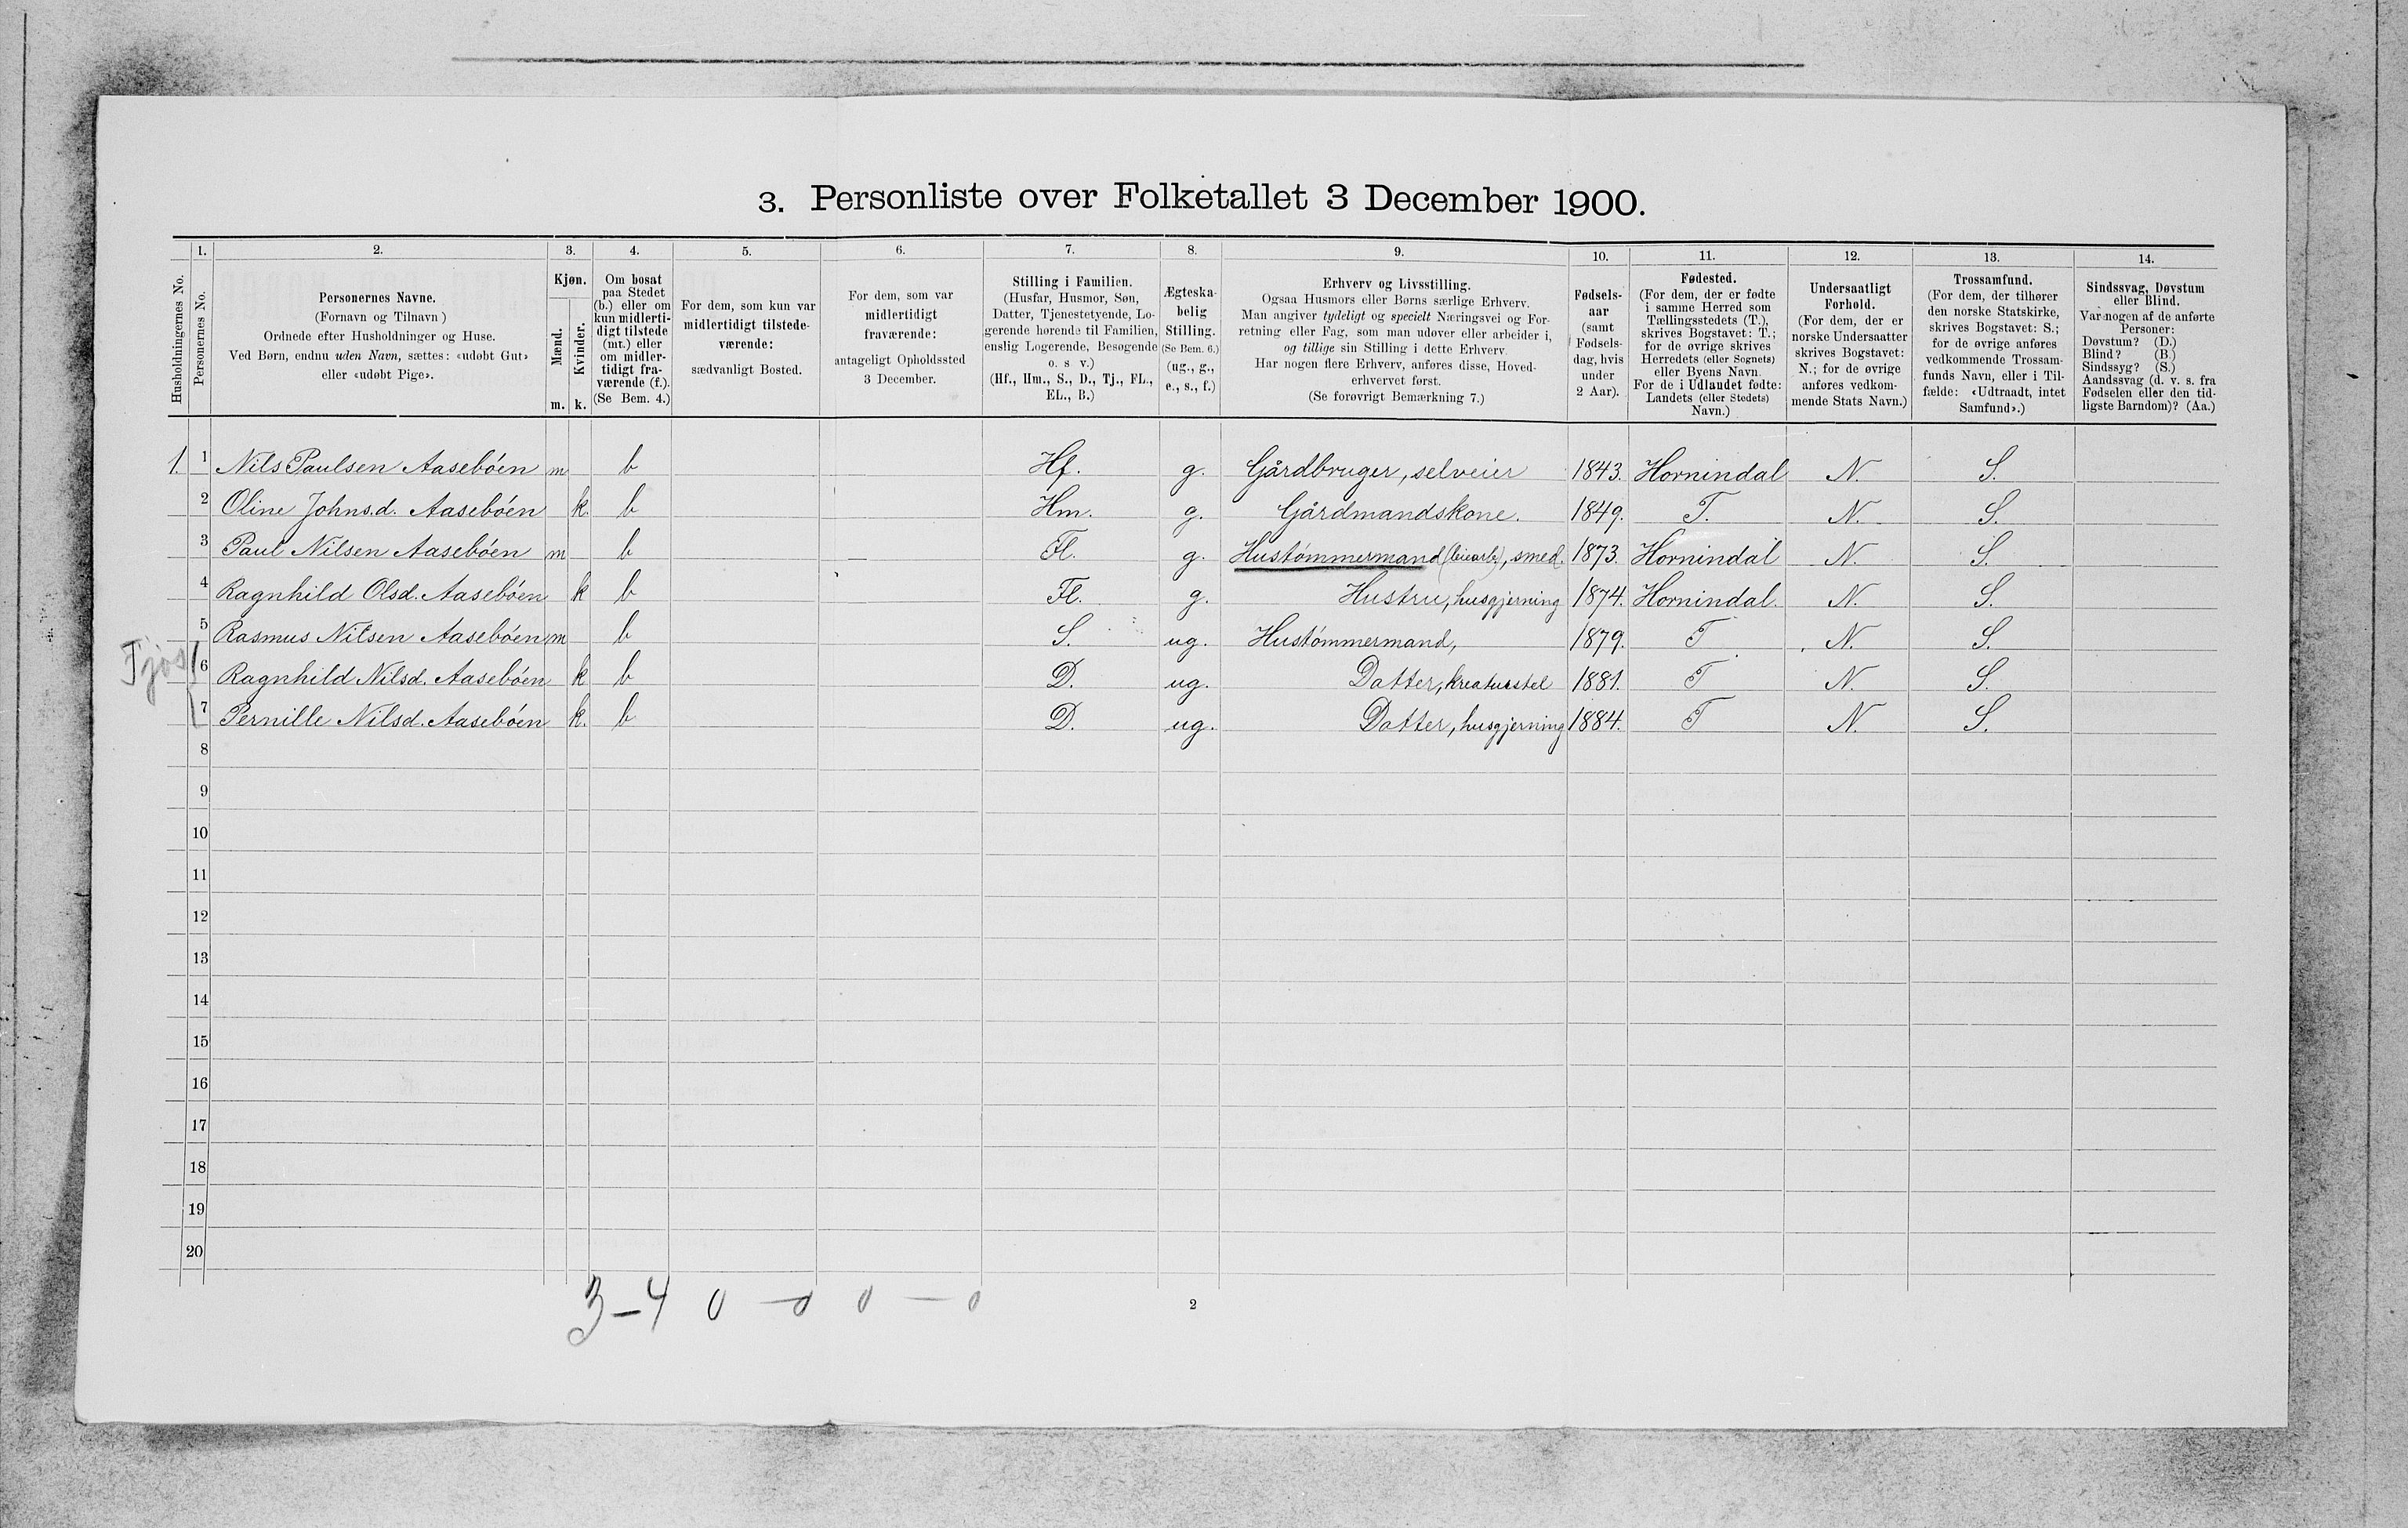 3. Personliste over Folketallet 3 December 1900.
Husholdningernes No.
1.
Personernes No.
2.
Personernes Navne.
(Fornavn og Tilnavn )
Ordnede efter Husholdninger og Huse.
Ved Børn, endnu uden Navn, sættes: «udøbt Gut»
eller «udøbt Pige».
3.
Kjøn.
Mænd.
Kvinder.
m. k.
4.
Om bosat
paa Stedet
(b.) eller om
kun midlerti-
digt tilstede
(mt.) eller
om midler-
tidigt fra-
værende (f.).
(Se Bem. 4.)
5.
For dem, som kun var
midlertidigt tilstede-
værende:
sædvanligt Bosted.
6.
For dem, som var
midlertidigt
fraværende:
antageligt Opholdssted
3 December.
7.
Stilling i Familien.
(Husfar, Husmor, Søn,
Datter, Tjenestetyende, Lo-
gerende hørende til Familien,
enslig Logerende, Besøgende
o. s v.)
(Hf., Hm., S., D., Tj., FL.,
EL., B.)
8.
Ægteska-
belig
Stilling.
(Se Bem. 6.)
(ug., g.,
e., s., f.)
9.
Erhverv og Livsstilling.
Ogsaa Husmors eller Børns særlige Erhverv.
Man angiver tydeligt og specielt Næringsvei og For-
retning eller Fag, som man udover eller arbeider i,
og tillige sin Stilling i dette Erhverv.
Har nogen flere Erhverv, anføres disse, Hoved-
erhvervet først.
(Se forøvrigt Bemærkning 7.)
10.
Fødsels-
aar
(samt
Fødsels-
dag, hvis
under
2 Aar).
11.
Fødested.
(For dem, der er fødte
i samme Herred som
Tællingsstedets (T.),
skrives Bogstavet: T.;
for de øvrige skrives
Herredets (eller Sognets)
eller Byens Navn.
For de i Udlandet fødte:
Landets (eller Stedets)
Navn.)
12.
Undersaatligt
Forhold.
(For dem, der er
norske Undersaatter
skrives Bogstavet:
N.; for de øvrige
anføres vedkom-
mende Stats Navn.)
13.
Trossamfund.
(For dem, der tilhører
den norske Statskirke,
skrives Bogstavet: S.;
for de øvrige anføres
vedkommende Trossam-
funds Navn, eller i Til-
fælde: «Udtraadt, intet
Samfund».)
14.
Sindssvag, Døvstum
eller Blind.
Var nogen af de anførte
Personer:
Døvstum? (D.)
Blind? (B.)
Sindssyg? (S.)
Aandssvag (d. v. s. fra
Fødselen eller den tid-
ligste Barndom)? (Aa.)
1. 1 Nils Paulsen Aasebóen m b Hf. g. Gårdbruger, selveier 1843. Hornindal N. S.
2 Oline Johns.d. Aasebóen k. b Hm. g. Gårdmandskone. 1849. T. N. S.
3 Paul Nilsen Aasebóen m b Fl. g. Hustómmermand (biearb), smed. 1873. Hornindal N. S.
4 Ragnhild Olsd. Aasebóen k b Fl. g. Hustru, husgjerning 1874. Hornindal. N. S.
5 Rasmus Nilsen Aasebóen m b S. ug. Hustómmermand, 1879. T N. S.
Fjøs
6 Ragnhild Nilsd. Aasebóen k b D. ug. Datter, kreaturstel 1881. T N. S.
7 Pernille Nilsd. Aasebóen k. b D. ug. Datter, husgjerning 1884. T N. S.
8
9
10
11
12
13
14
15
16
17
18
19
20
3-4 0 - 0 0 - 0
2